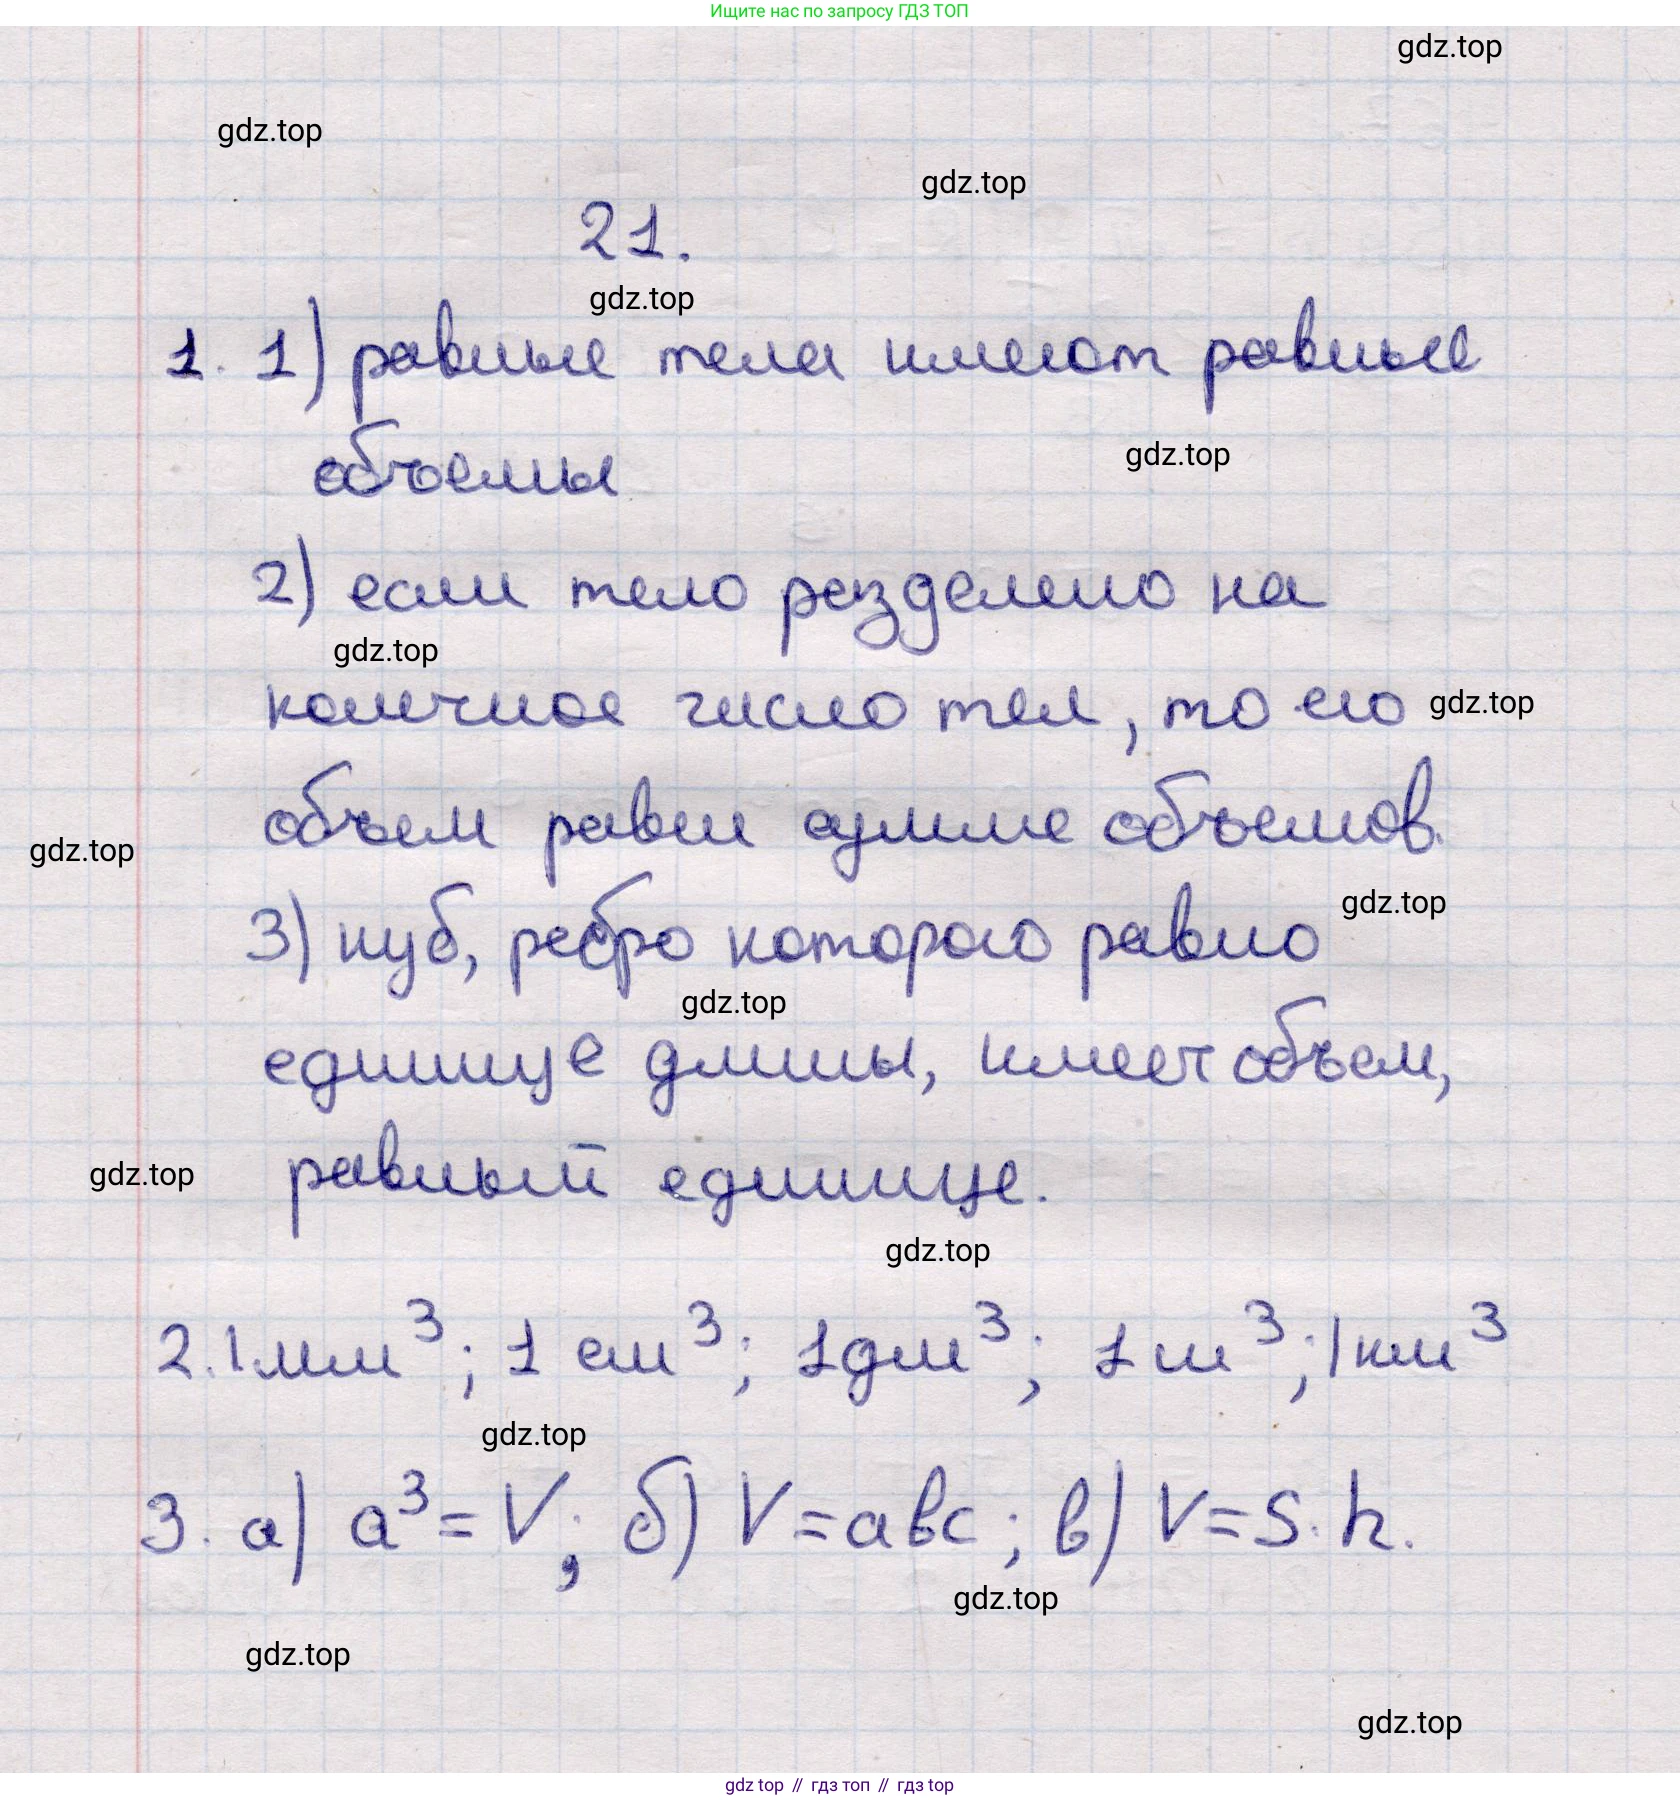 Ищите нас по запросу ГДЗ ТОП
gdz.top
gdz.top
gdz.top
21.
gdz.top
1. 1) равные тела имеют равные
gdz.top
объемы
2) если тело разделено на
gdz.top
конечное число тел, то его
gdz.top
объем равен сумме объемов.
gdz.top
gdz.top
3) куб, ребро которого равно
gdz.top
единице длины, имеет объем,
gdz.top
равный единице.
gdz.top
2. 1 мм³; 1 см³; 1 дм³; 1 м³; 1 км³
gdz.top
3. а) a³ = V; б) V = abc; в) V = S · h.
gdz.top
gdz.top
gdz.top
gdz top // гдз топ // гдз top